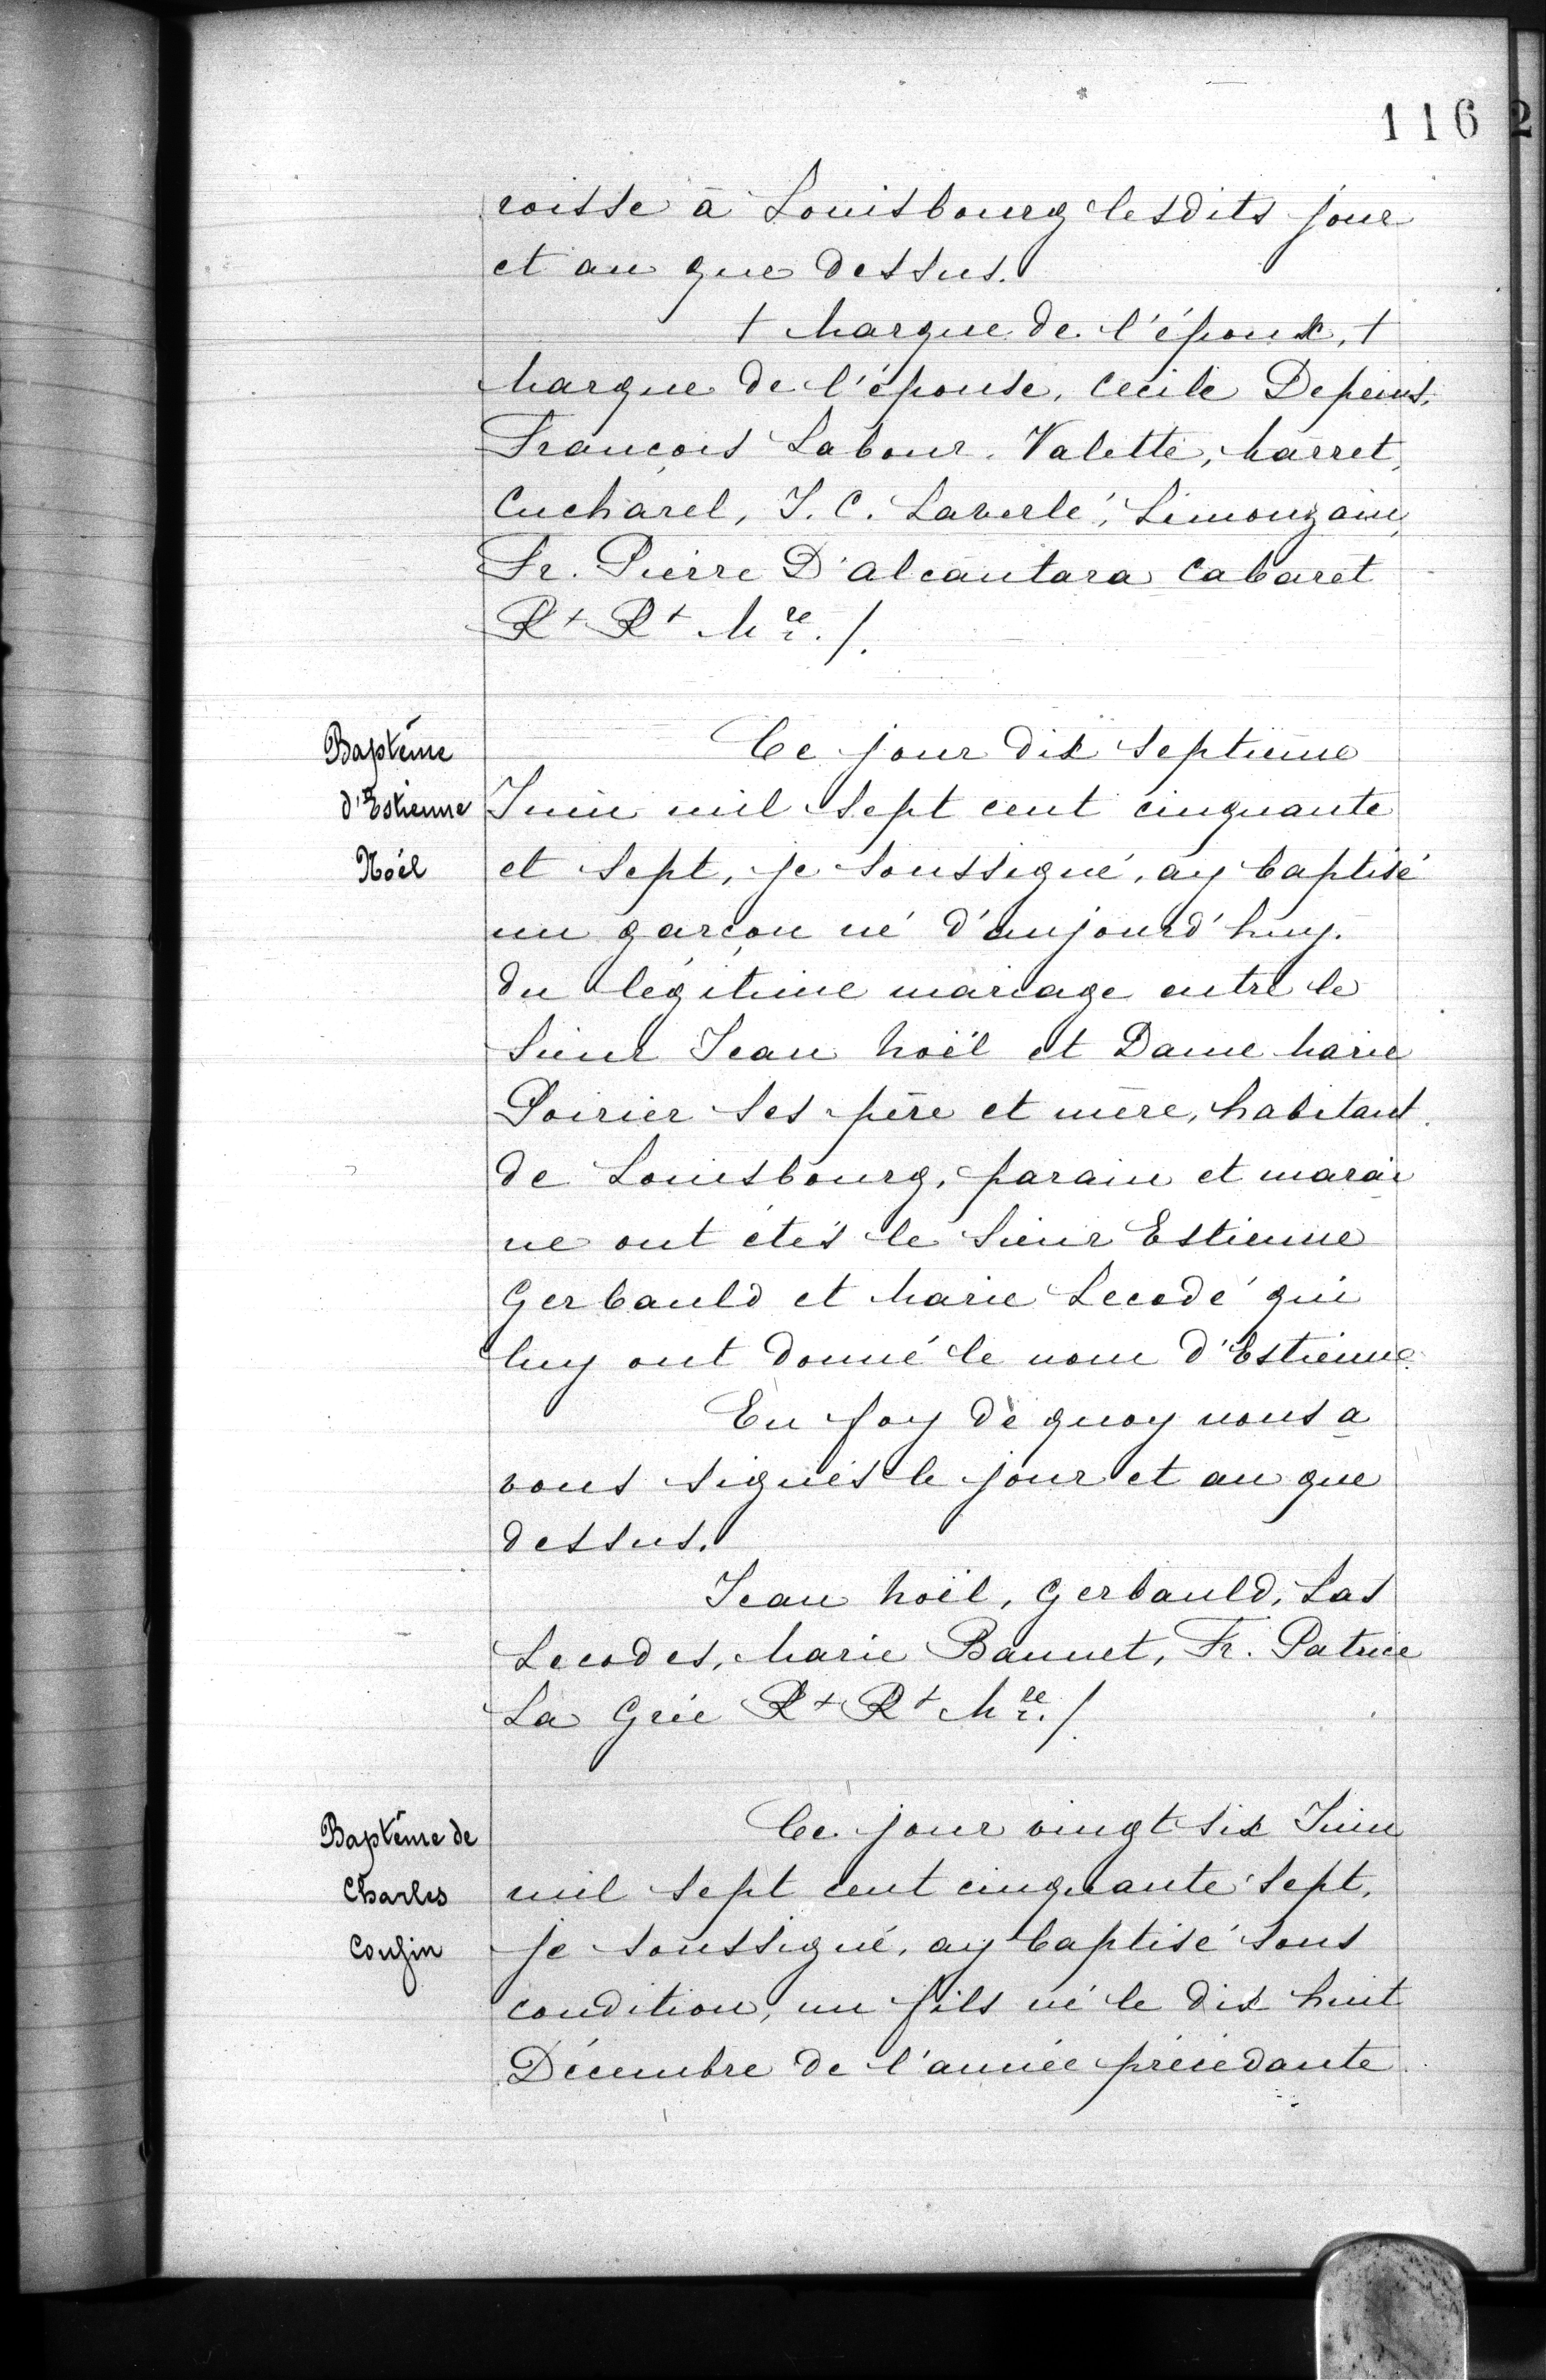 116
roisse à Louisbourg lesdits jour
et an que dessus.
† Marque de l'époux, †
Marque de l'épouse, Cecile Depeins,
François Labour, Valette, Marret,
Cucharel, J. C. Laverle, Limouzain,
Fr. Pierre D'alcantara Cabaret
Rt Rt Mre./.
Baptême
d'Estienne
Noël
Ce jour dix septième
Juin mil sept cent cinquante
et sept, je soussigné, ay baptisé
un garçon né d'aujourd'huy.
du légitime mariage entre le
Sieur Jean Noël et Dame Marie
Poirier ses père et mère, habitant
de Louisbourg, parain et marai
ne ont étés le Sieur Estienne
Gerbauld et Marie Lecodé qui
luy ont donné le nom d'Estienne.
En foy de quoy nous a
vons signés le jour et an que
dessus.
Jean Noël, Gerbauld, Las
Lecodes, Marie Baunet, Fr. Patrice
La Grée Rt Rt Mre./.
Baptême de
Charles
Cousin
Ce jour vingt six Juin
mil sept cent cinquante sept,
je soussigné, ay baptisé sous
condition, un fils né le dix huit
Décembre de l'année précédante